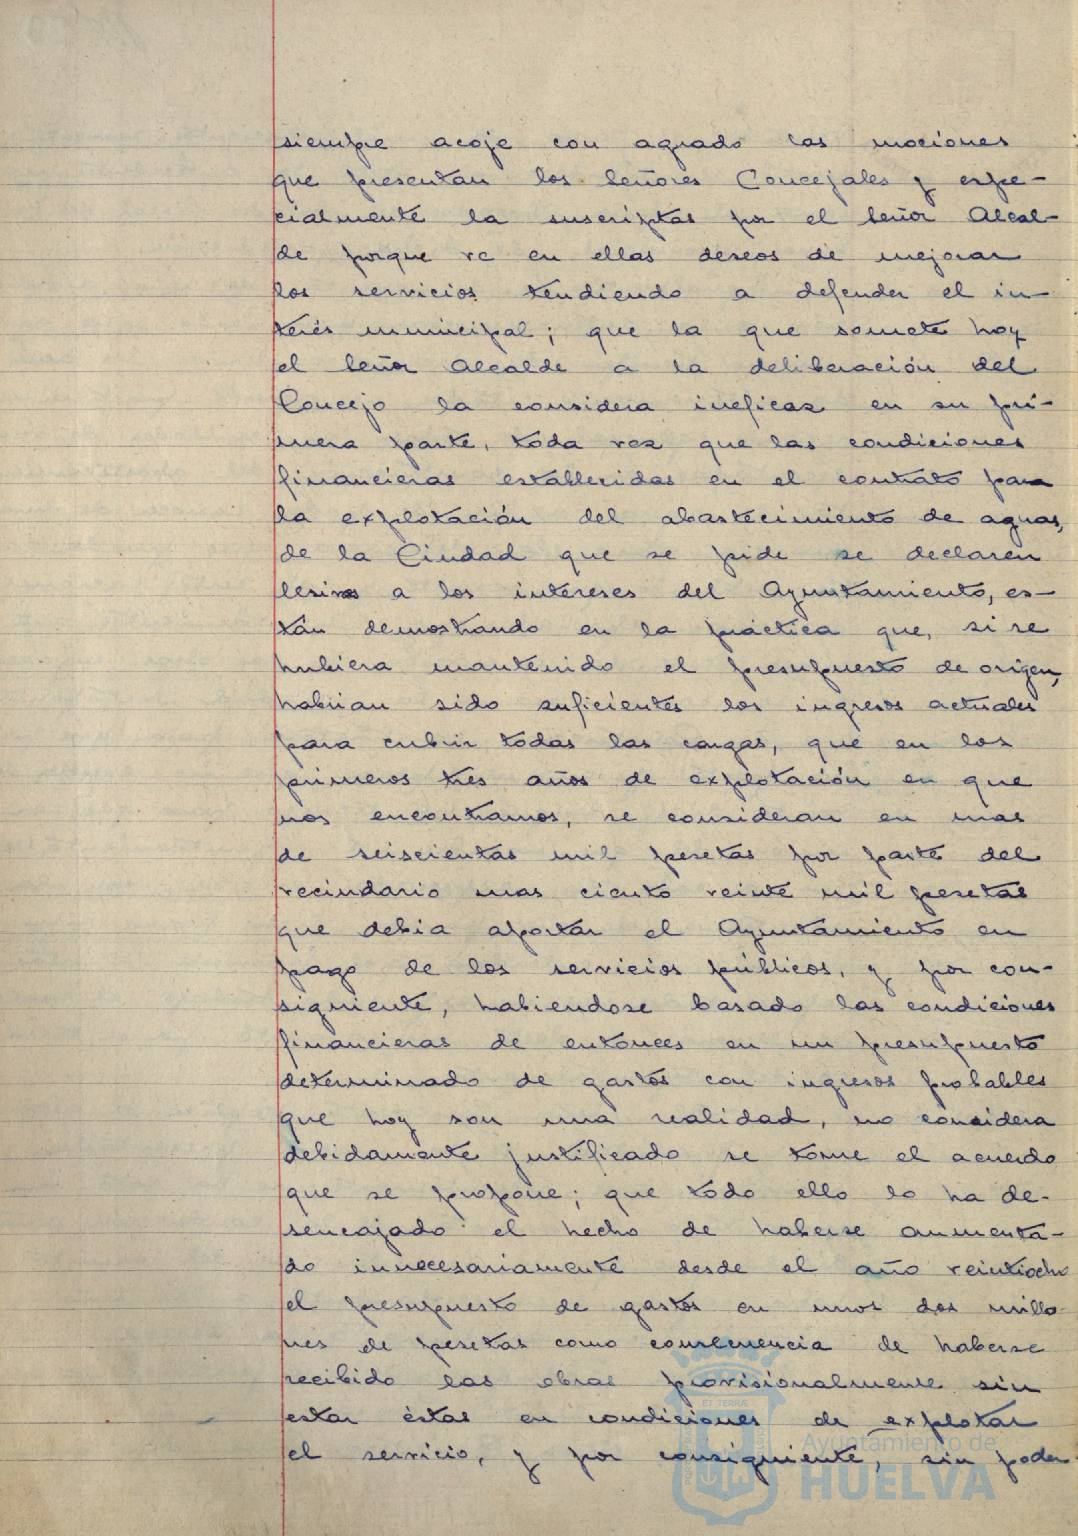 siempre acoje con agrado las mociones
que presentan los Señores Concejales y espe-
cialmente la suscriptas por el Señor Alcal-
de porque ve en ellas deseos de mejorar
los servicios tendiendo a defender el in-
terés municipal; que la que somete hoy
el Señor Alcalde a la deliberación del
Concejo la considera ineficaz en su pri-
mera parte, toda vez que las condiciones
financieras establecidas en el contrato para
la explotación del abastecimiento de aguas,
de la Ciudad que se pide se declaren
lesivos a los intereses del Ayuntamiento, es-
tán demostrando en la práctica que, si se
hubiera mantenido el presupuesto de origen,
habrian sido suficientes los ingresos actuales
para cubrir todas las cargas, que en los
primeros tres años de explotación en que
nos encontramos, se consideran en mas
de seiscientas mil pesetas por parte del
vecindario mas ciento veinte mil pesetas
que debia aportar el Ayuntamiento en
pago de los servicios públicos, y por con-
siguiente, habiendose basado las condiciones
financieras de entonces en un presupuesto
determinado de gastos con ingresos probables
que hoy son una realidad, no considera
debidamente justificado se tome el acuerdo
que se propone; que todo ello lo ha de-
sencajado el hecho de haberse aumenta-
do innecesariamente desde el año veintiocho
el presupuesto de gastos en unos dos millo
nes de pesetas como consecuencia de haberse
recibido las obras provisionalmente sin
estar éstas en condiciones de explotar
el servicio, y por consiguiente, sin poder
Ayuntamiento de
HUELVA